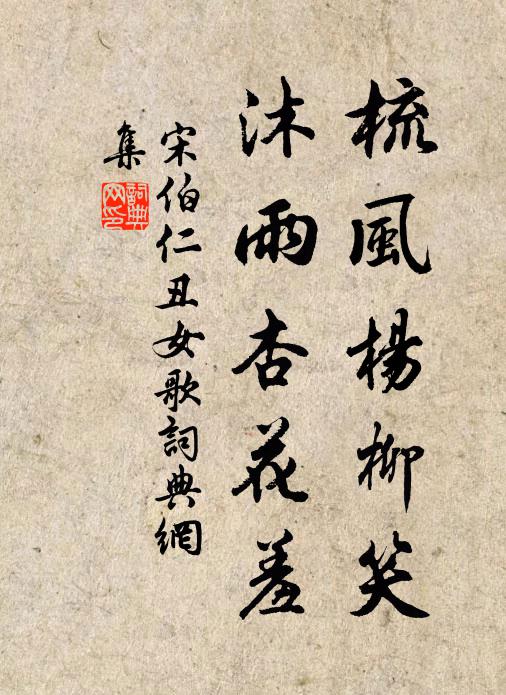 梳風楊柳笑
沐雨杏花羞
宋伯仁丑女歌詞典網
集
詞典網印